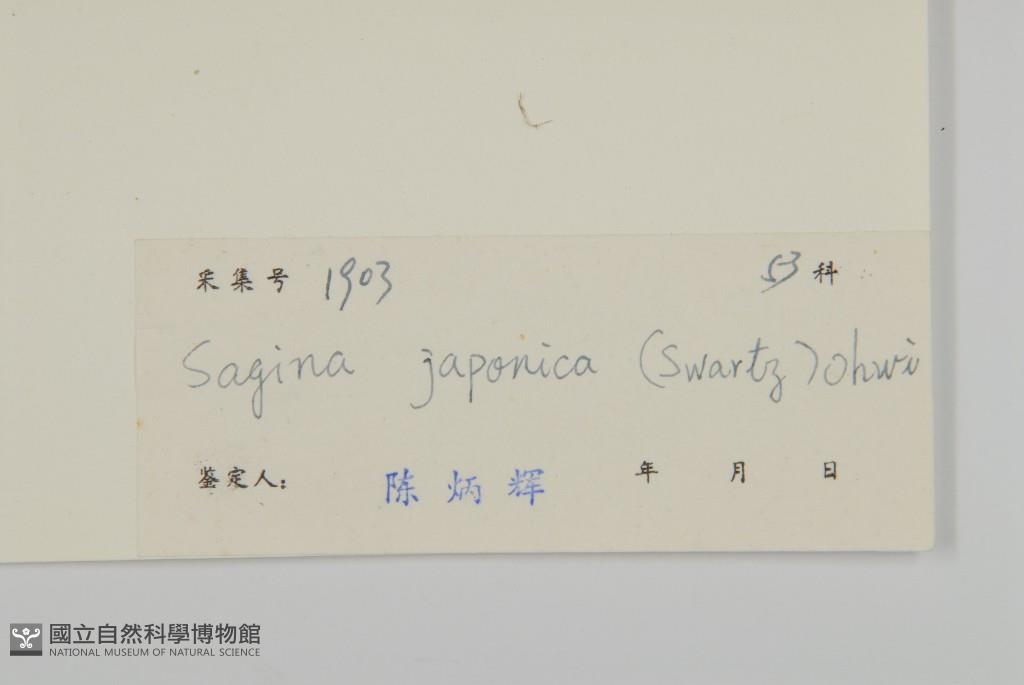 采集号 1903 53 科
Sagina japonica (Swartz) Ohwi
鉴定人: 陈炳辉 年 月 日
國立自然科學博物館
NATIONAL MUSEUM OF NATURAL SCIENCE